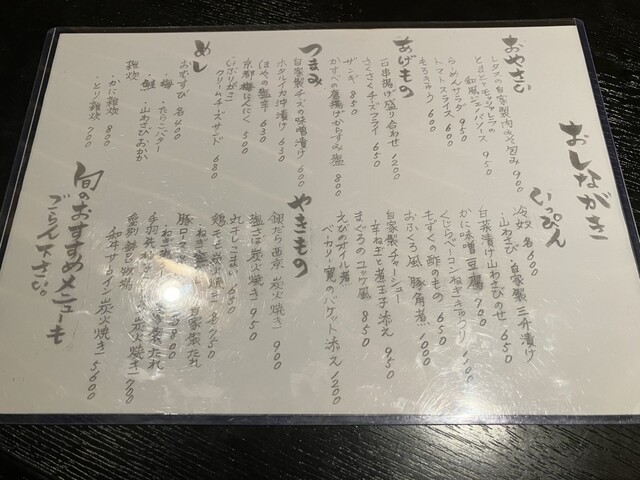 おしながき
おやさい
レタスの自家製肉みそ包み 900
とまとモッツァレラの
和風ジェノバソース 950
らーめんサラダ 950
トマトスライス 600
もろきゅう 600
あげもの
石串揚げ盛り合わせ 1200
さくさくチーズフライ 650
ザンギ 850
かすべの唐揚げからすみ塩 800
つまみ
自家製チーズの味噌漬け 600
ホタルイカ沖漬け 630
ほやの塩辛 630
京都梅にんにく 500
いぶりがっこ
クリームチーズサンド 680
めし
おむすび 各400
・梅 ・たらこバター
・鮭 ・山わさびおかか
雑炊
・かに雑炊 800
・とり雑炊 700
いっぴん
冷奴 各600
・山わさび ・自家製三升漬け
白菜漬け山わさびのせ 650
かに味噌豆腐 700
くじらベーコンねぎきゅうり
もずくの酢のもの 650
おふくろ風 豚角煮 1000
自家製チャーシュー
辛ねぎと煮玉子添え 950
まぐろのユッケ風 850
えびのオイル煮
ベーカリー 寛のバケット添え 1200
やきもの
銀だら西京 炭火焼き 900
塩さば 炭火焼き 950
丸干しこまい 650
鶏モモ炭火焼き 850
・ねぎ塩 ・自家製たれ
豚ロース
炭火焼き
和牛サーロイン炭火焼き 5600
旬のおすすめメニューも
ごらん下さい。